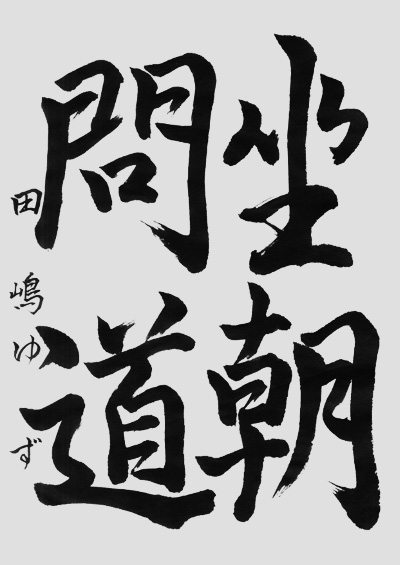 坐朝
問道
田嶋ゆず